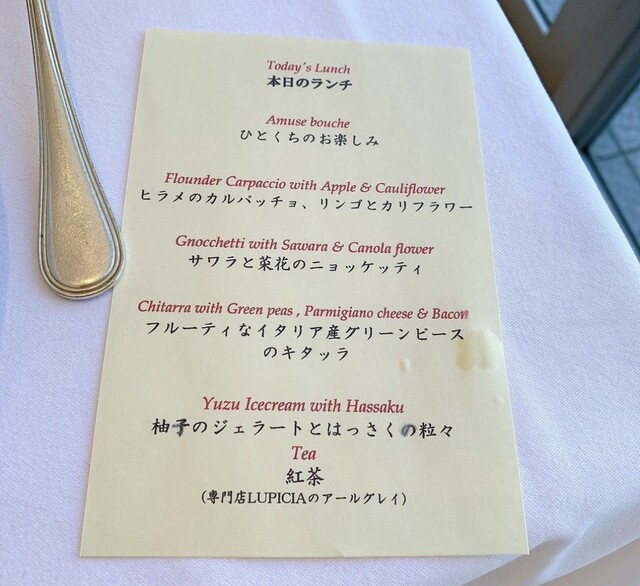 Today's Lunch
本日のランチ
Amuse bouche
ひとくちのお楽しみ
Flounder Carpaccio with Apple & Cauliflower
ヒラメのカルパッチョ、リンゴとカリフラワー
Gnocchetti with Sawara & Canola flower
サワラと菜花のニョッケッティ
Chitarra with Green peas , Parmigiano cheese & Bacon
フルーティなイタリア産グリーンピース
のキタッラ
Yuzu Icecream with Hassaku
柚子のジェラートとはっさくの粒々
Tea
紅茶
(専門店LUPICIAのアールグレイ)